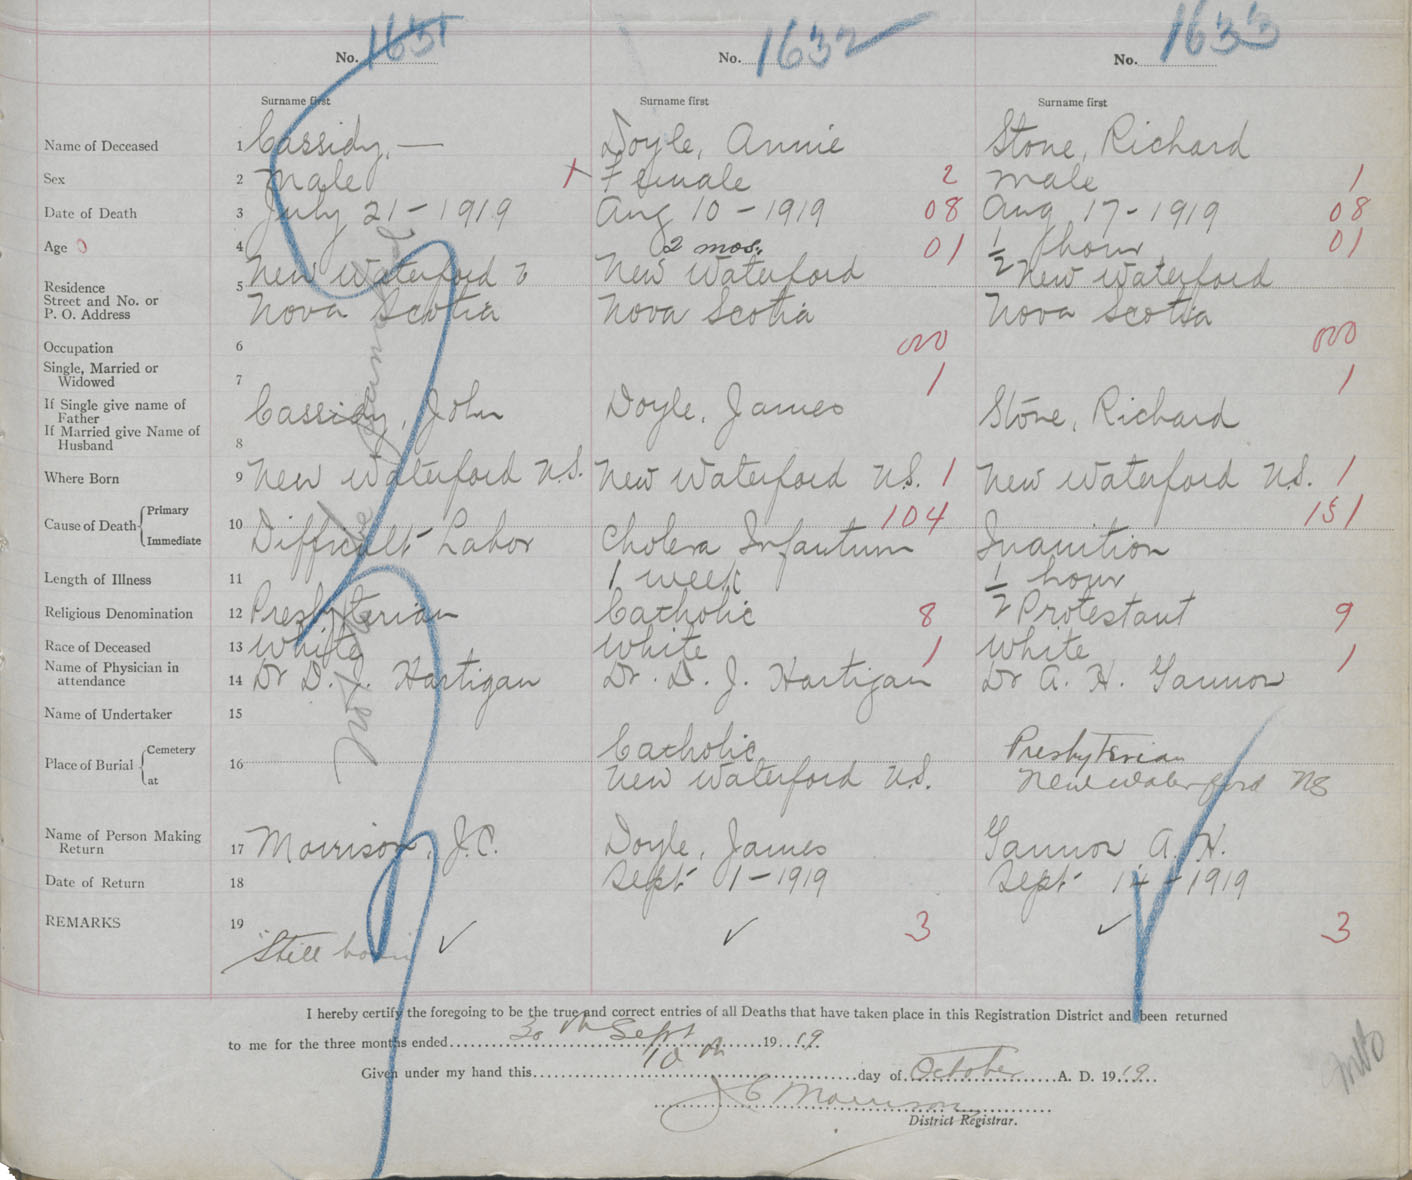 No. 1631 No. 1632 No. 1633
Surname first Surname first Surname first
Name of Deceased 1 Cassidy, — Doyle, Annie Stone, Richard
Sex 2 Male 1 Female 2 Male 1
Date of Death 3 July 21-1919 Aug 10-1919 08 Aug 17-1919 08
Age 0 4 2 mos. 01 1/2 hour 01
Residence
Street and No. or
P. O. Address
5 New Waterford New Waterford New Waterford
Nova Scotia Nova Scotia Nova Scotia
Occupation 6 000 000
Single, Married or
Widowed 7 1 1
If Single give name of
Father
If Married give Name of
Husband
8 Cassidy, John Doyle, James Stone, Richard
Where Born 9 New Waterford N.S. New Waterford N.S. 1 New Waterford N.S. 1
Cause of Death Primary 104 151
Immediate
10 Difficult Labor Cholera Infantum Inanition
Length of Illness 11 1 week 1/2 hour
Religious Denomination 12 Presbyterian Catholic 8 Protestant 9
Race of Deceased 13 White White 1 White 1
Name of Physician in
attendance 14 Dr D. J. Hartigan Dr. D. J. Hartigan Dr A. H. Gannon
Name of Undertaker 15
Place of Burial Cemetery
at
16 Catholic Presbyterian
New Waterford N.S. New Waterford NS
Name of Person Making
Return 17 Morrison, J.C. Doyle, James Gannon A. H.
Date of Return 18 Sept 1-1919 Sept 14-1919
REMARKS 19 3 3
Still born ✓ ✓ ✓
Not to be
I hereby certify the foregoing to be the true and correct entries of all Deaths that have taken place in this Registration District and been returned
to me for the three months ended 30th Sept 1919
Given under my hand this 10th day of October A. D. 1919
J C Morrison
District Registrar.